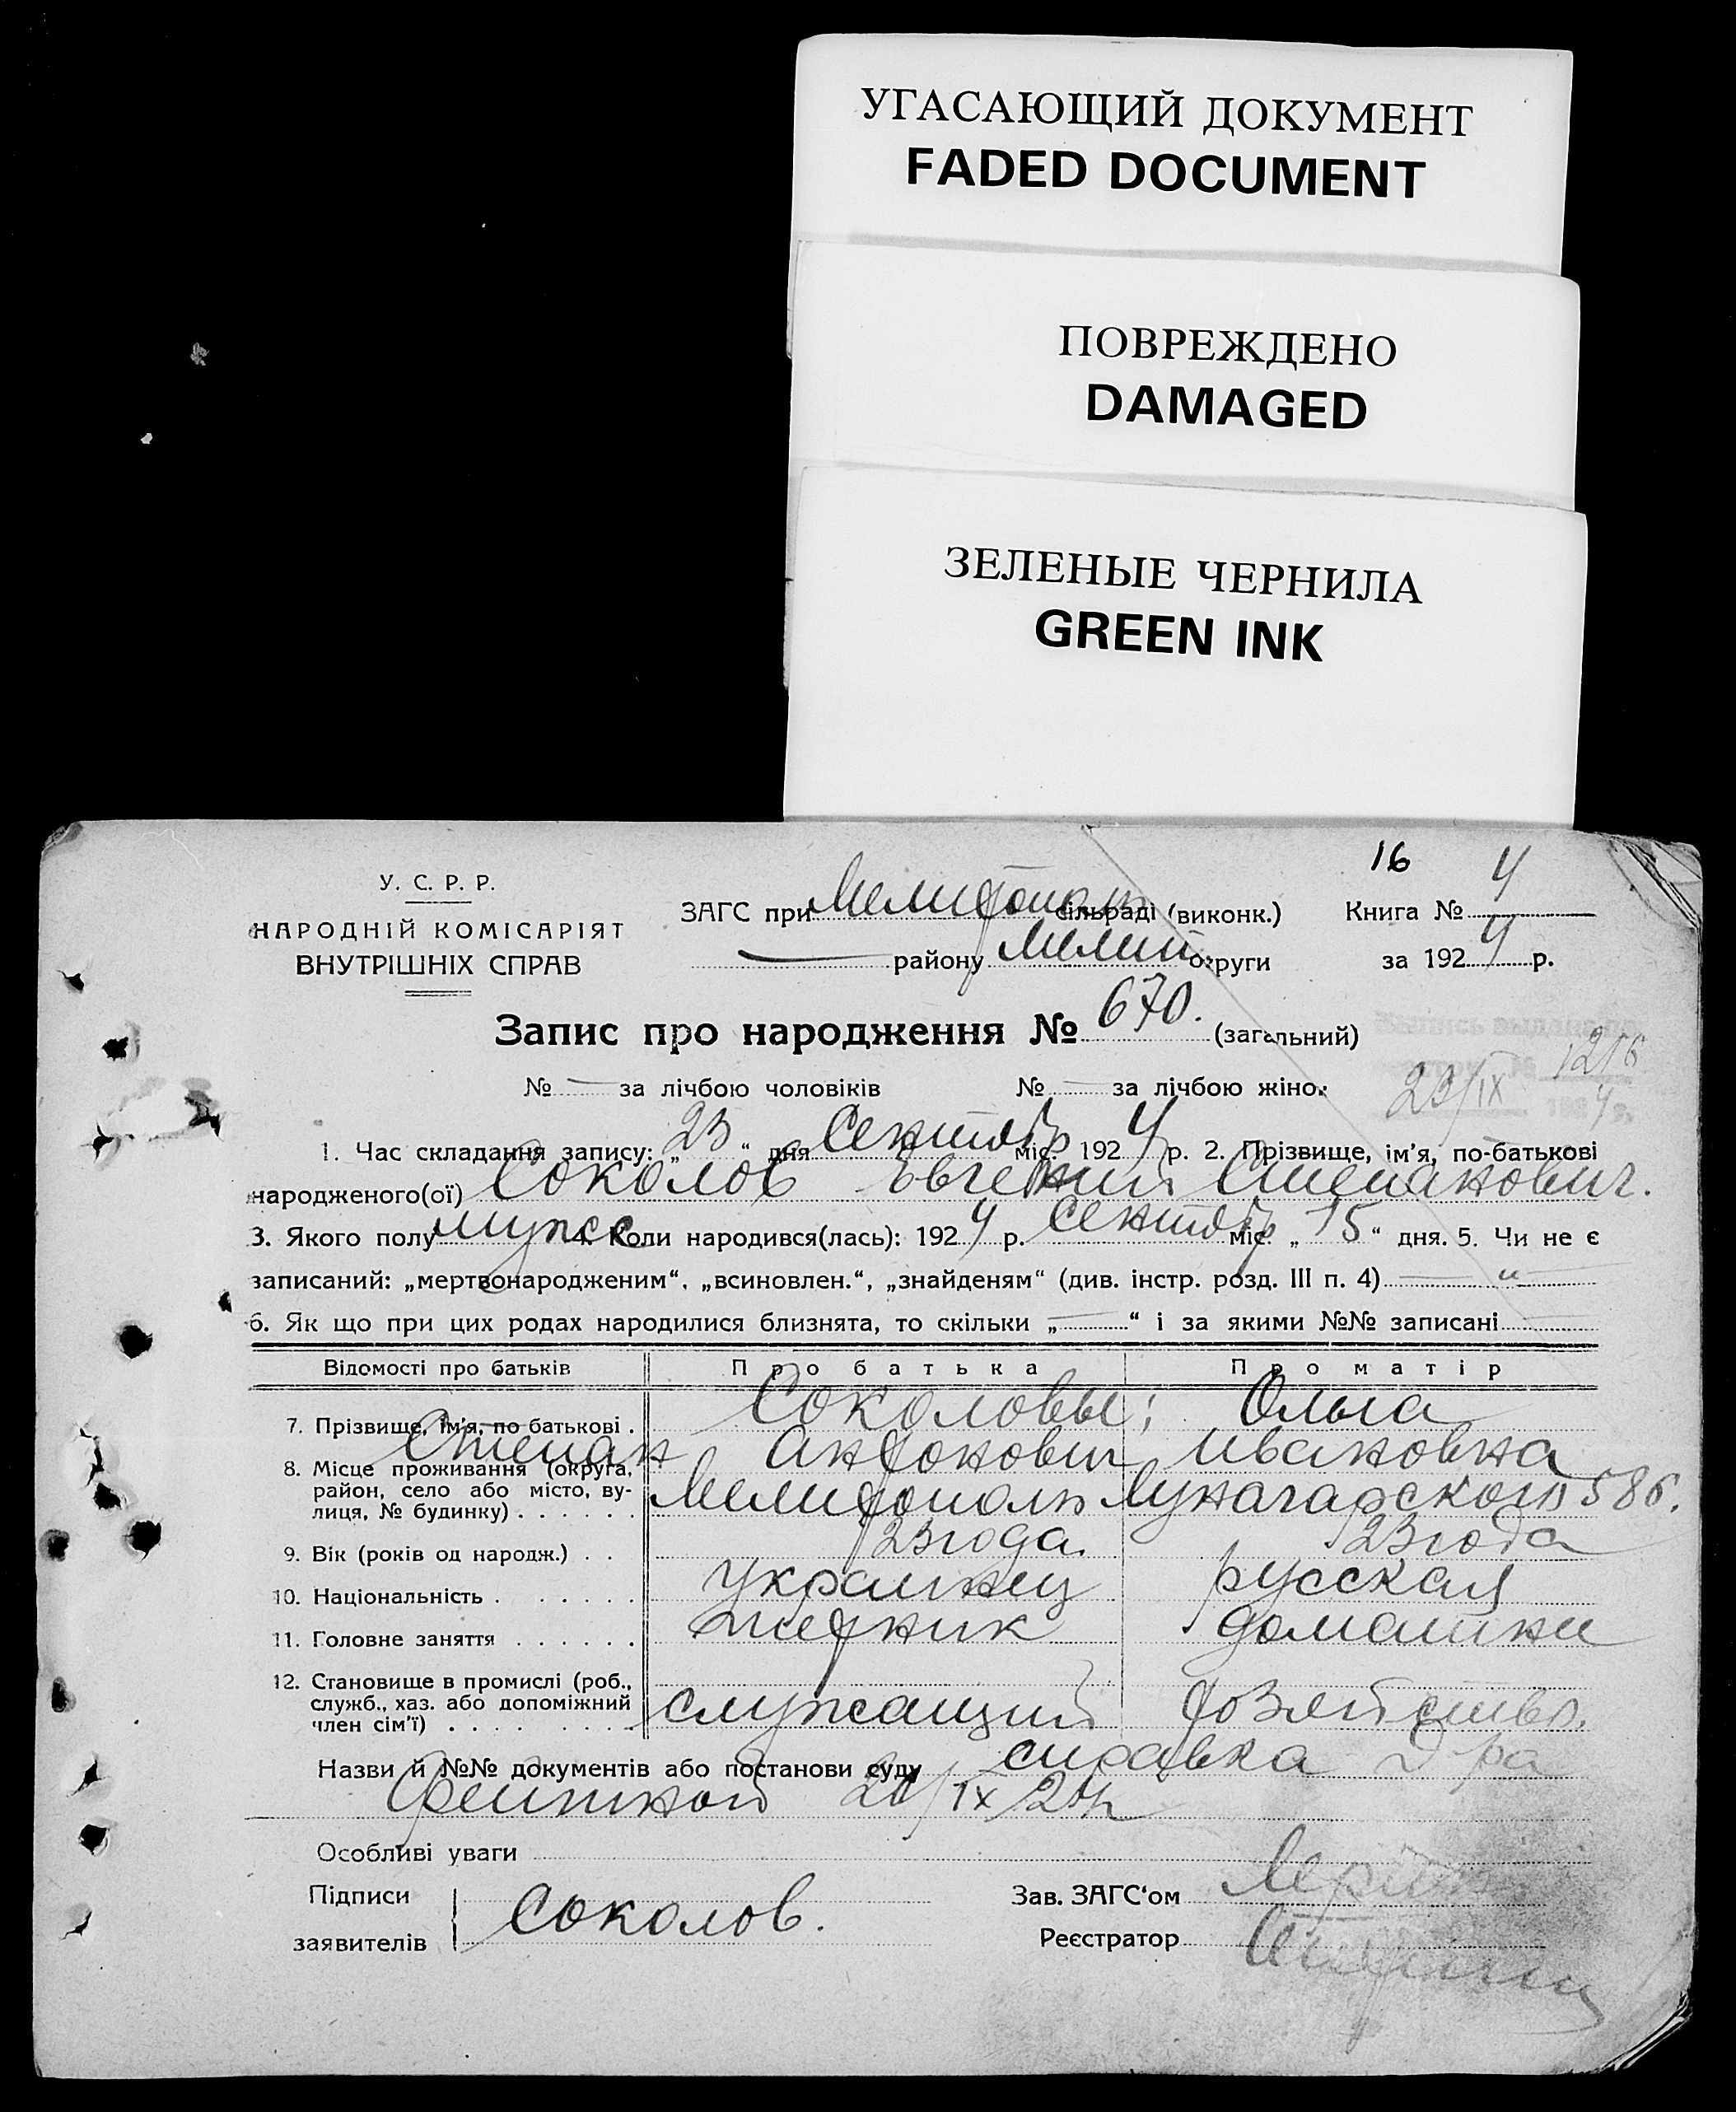 УГАСАЮЩИЙ ДОКУМЕНТ
FADED DOCUMENT
ПОВРЕЖДЕНО
DAMAGED
ЗЕЛЕНЫЕ ЧЕРНИЛА
GREEN INK
16
У. С. Р. Р.
НАРОДНІЙ КОМІСАРІЯТ
ВНУТРІШНІХ СПРАВ
ЗАГС при Мелитополь сільраді (виконк.) Книга № 4
— району Мелит округи за 1924 р.
Запис про народження № 670. (загальний)
№ — за лічбою чоловіків № — за лічбою жінок
1216
23/IX 4
1. Час складання запису: „23“ дня Сентябр міс. 1924 р. 2. Прізвище, ім'я, по-батькові
народженого(ої) Соколов Евгений Степанович.
3. Якого полу мужс 4. Коли народився(лась): 1924 р. Сентябр міс. „15“ дня. 5. Чи не є
записаний: „мертвонародженим“, „всиновлен.“, „знайденям“ (див. інстр. розд. III п. 4) — „ —
6. Як що при цих родах народилися близнята, то скільки „—“ і за якими №№ записані —
Відомості про батьків Про батька Про матір
7. Прізвище, ім'я, по батькові . Соколовы; Ольга
Степан Антонович Ивановна
8. Місце проживання (округа,
район, село або місто, ву-
лиця, № будинку) . . . . . . Мелитополь Луначарского 58б.
9. Вік (років од народж.) . . 23 года. 23 года
10. Національність . . . . . . украинец русская
11. Головне заняття . . . . . . домашнее
12. Становище в промислі (роб.,
служб., хаз. або допоміжний
член сім'ї) . . . . . . . . служащий хозяйство.
Назви й №№ документів або постанови суду справка Д-ра
20/IX 24 р
Особливі уваги
Підписи
заявителів Соколов.
Зав. ЗАГС'ом
Реєстратор